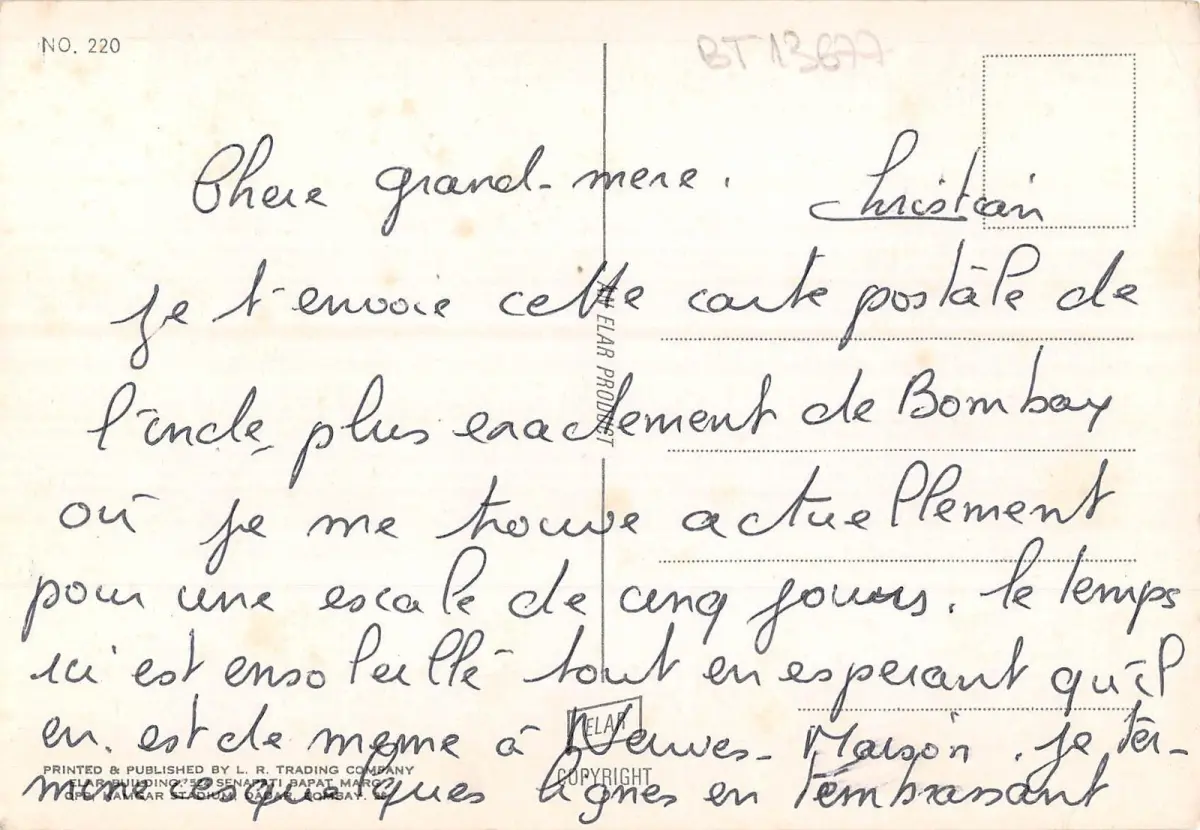 NO. 220
BT13677
Chere grand-mere.
Christian
je t'envoie cette carte postâle de
l'inde, plus exactement de Bombay
où je me trouve actuellement
pour une escale de cinq jours. le temps
ici est ensoleillé tout en esperant qu'il
en est de meme à Neuves-Maison. je ter-
mine ces quelques lignes en t'embrassant
AN ELAR PRODUCT
ELAR
COPYRIGHT
PRINTED & PUBLISHED BY L. R. TRADING COMPANY
ELAR BUILDING, SENAPATI BAPAT MARG
OPP. KAMGAR STADIUM, DADAR, BOMBAY.